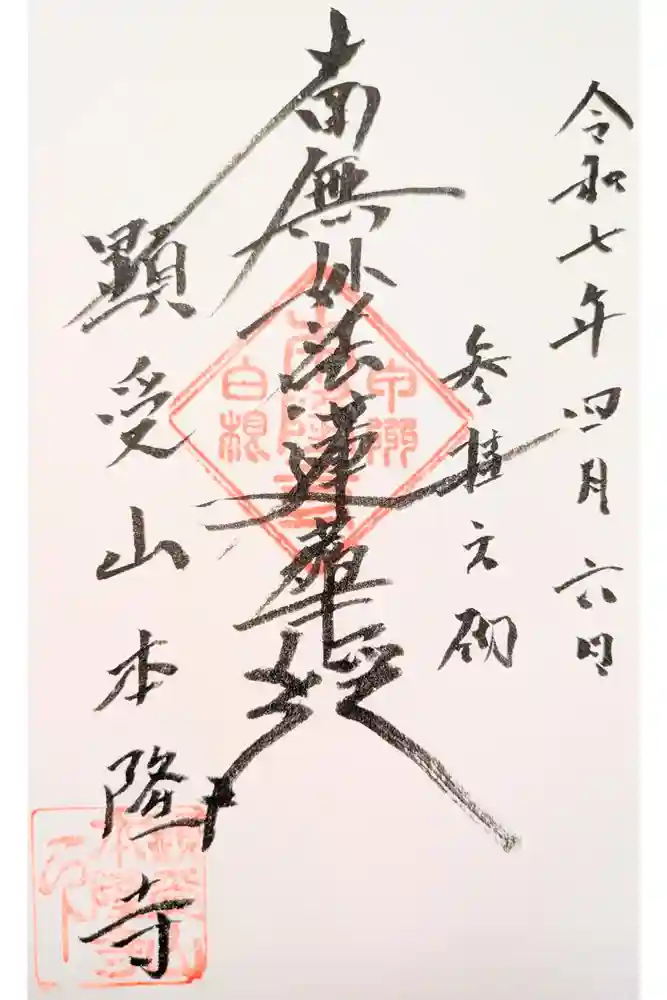 令和七年四月六日
参詣之砌
南無妙法蓮華経
顕受山本隆寺
白根